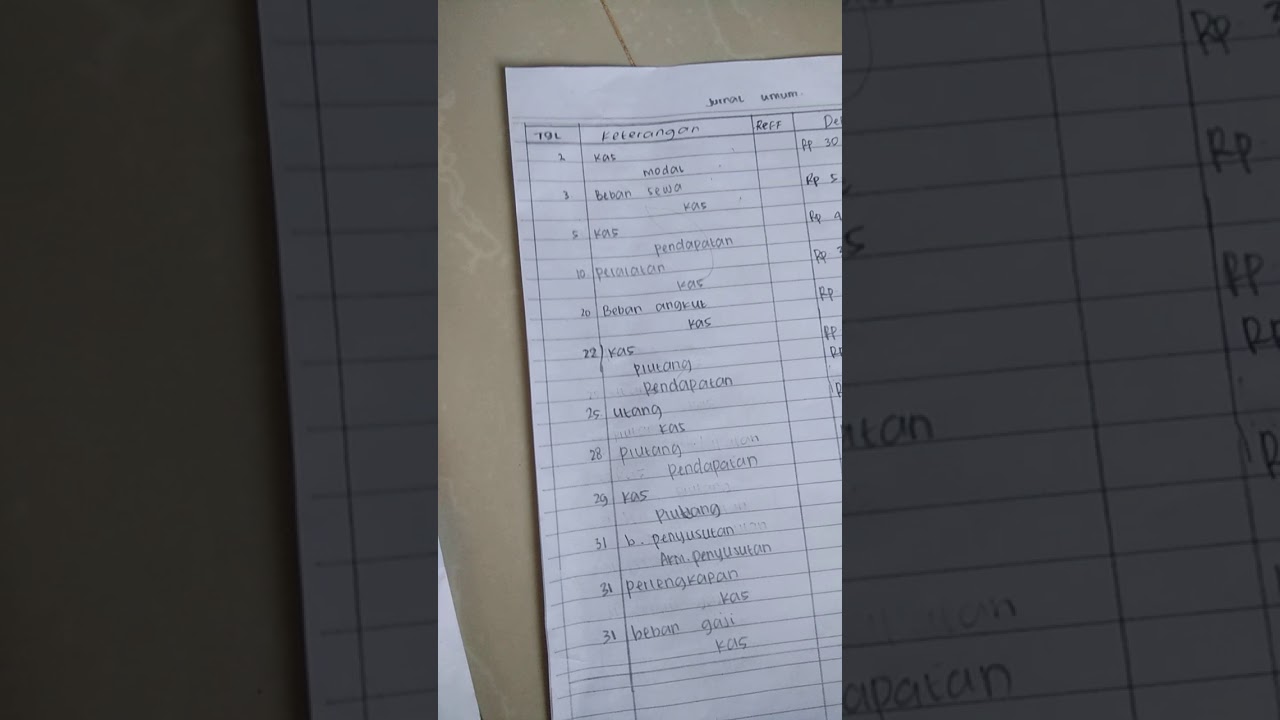 Jurnal umum.
TGL Keterangan Reff De
2 Kas Rp 30
modal
3 Beban sewa Rp 5
Kas
5 Kas Rp
pendapatan
10 peralatan Rp
Kas
20 Beban angkut Rp
Kas
22 Kas Rp
piutang
pendapatan
25 utang
Kas
28 piutang
pendapatan
29 Kas
piutang
31 b. penyusutan
Akm. penyusutan
31 perlengkapan
Kas
31 beban gaji
Kas